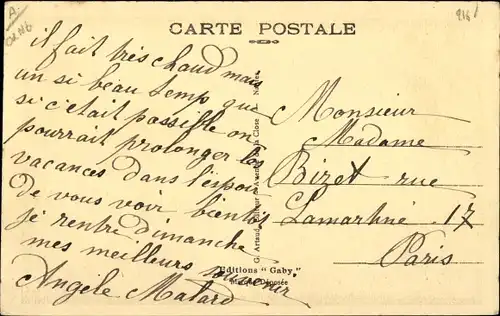 CARTE POSTALE
il fait très chaud mais
un si beau temp que
si c'était possible on
pourrait prolonger les
vacances dans l'espoir
de vous voir bientôt
je rentre dimanche
mes meilleurs souvenir
Angèle Matard
Editions "Gaby"
Marque Déposée
G. Artaud, Editeur
Nantes
Monsieur
Madame
Bizet rue
Lamartine 17
Paris